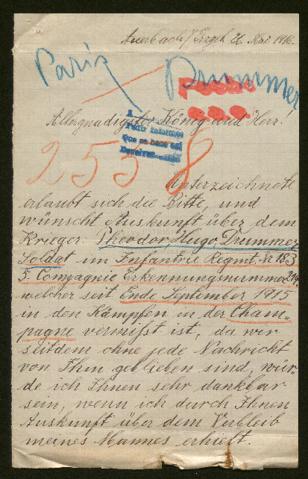 Auerbach i/ Erzgeb. 26. Mai 1916.
Paris
Drummer
Allergnädigster König und Herr!
2558
Unterzeichnete
erlaubt sich die Bitte, und
wünscht Auskunft über dem
Krieger Theodor Hugo Drummer
Soldat im Infantrie Regmt. Nr. 183
5. Compagnie Erkennungsnummer
welcher seit Ende September 1915
in den Kämpfen in der Cham-
pagne vermißt ist, da wir
seitdem ohne jede Nachricht
von Ihm geblieben sind, wür-
de ich Ihnen sehr dankbar
sein, wenn ich durch Ihnen
Auskunft über dem Verbleib
meines Mannes erhielt.